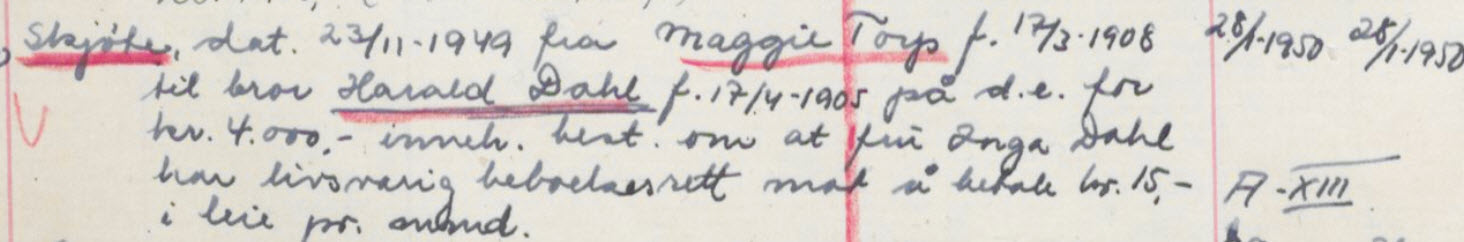 Skjøte, dat. 23/11-1949 fra Maggie Torp f. 17/3-1908 28/1-1950 28/1-1950
til bror Harald Dahl f. 17/4-1905 på d.e. for
kr. 4.000,- inneh. best. om at fru Inga Dahl
har livsvarig beboelsesrett mot å betale kr. 15,- A - XIII
i leie pr. mnd.